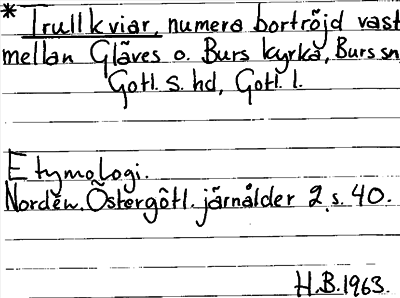 * Trullkviar, numera bortröjd vast
mellan Gläves o. Burs kyrka, Burs sn
Gotl. S. hd, Gotl. l.
Etymologi.
Nordén. Östergötl. järnålder 2 s. 40.
H.B. 1963.